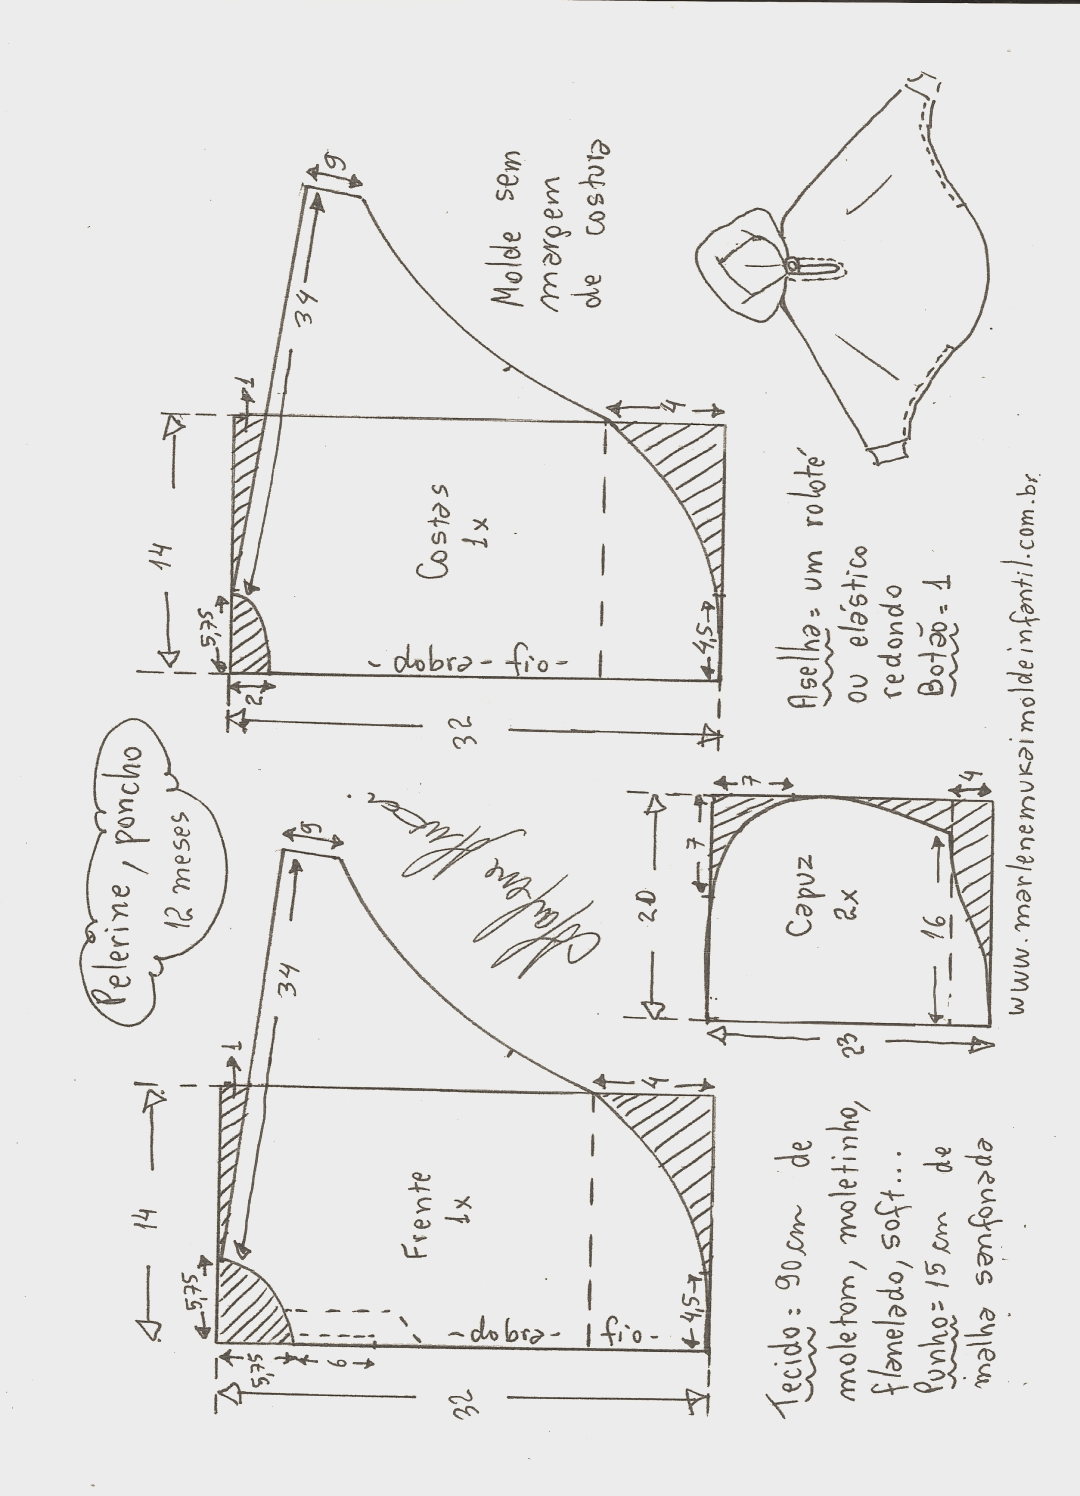 Pelerine, poncho
12 meses
14
5,75
1
34
9
5,75
6
32
Frente
1x
-dobra- fio-
4,5
4
14
5,75
1
34
9
2
32
Costas
1x
-dobra- fio-
4,5
4
Molde sem
margem
de costura
Marlene Mukai
Tecido = 90cm de
moletom, moletinho,
flanelado, soft...
Punho = 15cm de
malha sanfonada
20
7
7
23
Capuz
2x
16
4
Aselha = um roloté
ou elástico
redondo
Botão = 1
www.marlenemukaimoldeinfantil.com.br